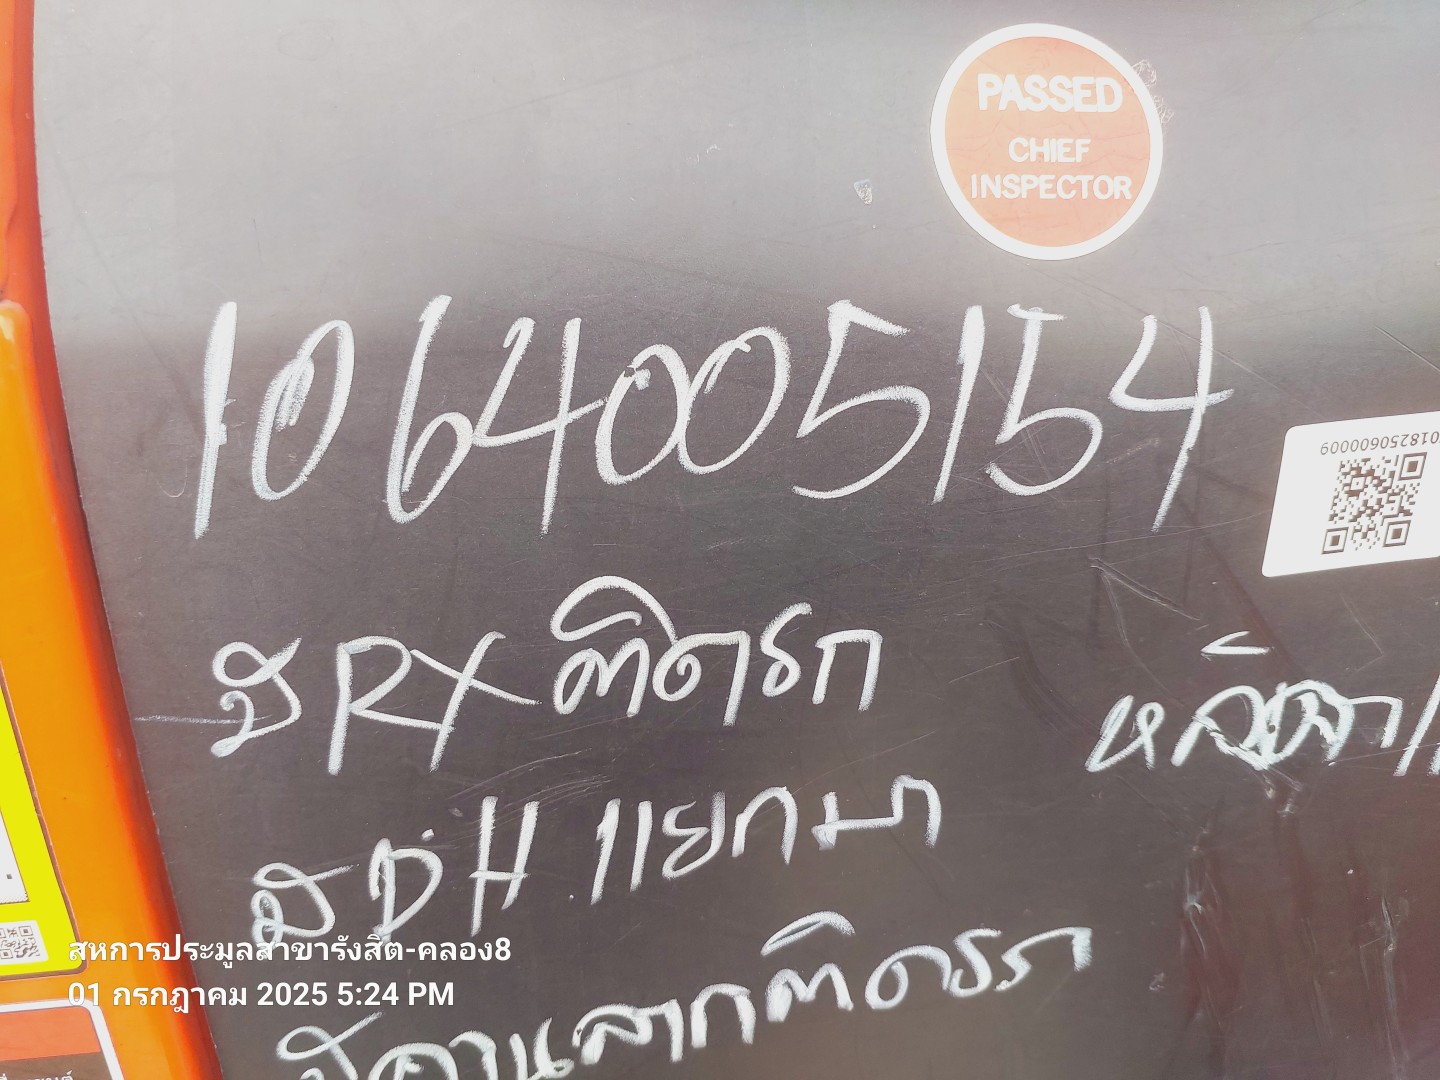 PASSED
CHIEF
INSPECTOR
1064005154
018250600009
มี RX ติดรถ
มี ชุ่ H แยกมา
มีคานลากติดรถ
สหการประมูลสาขารังสิต-คลอง8
01 กรกฎาคม 2025 5:24 PM